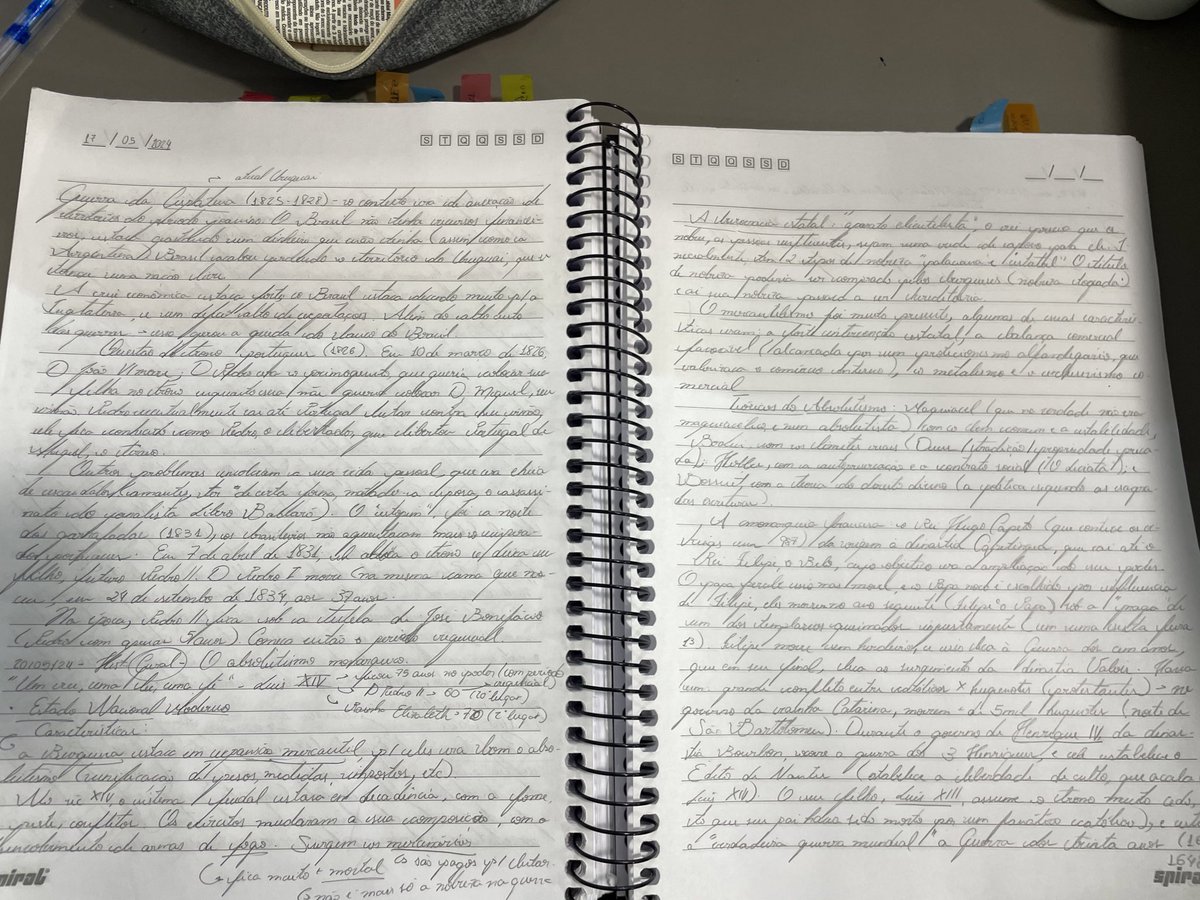 17 / 05 / 2024
S T Q Q S S D
→ atual Uruguai
Guerra da Cisplatina (1825-1828) - o contexto era de anexação de
territórios do período joanino. O Brasil não tinha recursos financei-
ros, estava gastando um dinheiro que não tinha (assim como a
Argentina). O Brasil acabou perdendo o território do Uruguai, que v
uma nação livre.
A crise econômica estava forte, o Brasil estava devendo muito p/ a
Inglaterra, e um déficit alto de exportações. Além do alto custo
das guerras - isso gerou a queda do Banco do Brasil.
Questão do trono português (1826) Em 10 de março de 1826,
D. João VI morre, D. Pedro era o primogênito, que queria colocar sua
filha no trono enquanto sua mãe queria colocar D. Miguel, seu
irmão. Pedro eventualmente vai até Portugal lutar contra seu irmão,
ele fica conhecido como Pedro, o libertador, que liberta Portugal de
Miguel, o tirano.
Outros problemas envolviam a sua vida pessoal, que era cheia
de escândalos (amantes, ter "de certa forma, matado a esposa, o assassi-
nato do jornalista Líbero Badaró). O "estopim" foi a noite
das garrafadas (1831), os brasileiros não aguentavam mais o impera-
dor português. Em 7 de abril de 1831 ele abdica o trono e deixa seu
filho, futuro Pedro II. D. Pedro I morre (na mesma cama que nas-
ceu), em 24 de setembro de 1834 aos 37 anos.
Na época, Pedro II fica sob a tutela de José Bonifácio
(Pedro com apenas 5 anos). Começa então o período regencial.
20/05/24 - Hist (Geral) O absolutismo monárquico.
"Um rei, uma lei, uma fé" - Luis XIV → ficou 75 anos no poder (com período
regencial)
D. Pedro II → 60 (10º lugar)
Rainha Elizabeth → 70 (2º lugar)
• Estado Nacional Moderno
Características:
a Burguesia estava em expansão mercantil, p/ eles era bom o abso-
lutismo (unificação de pesos, medidas, impostos, etc)
No séc XIV o sistema feudal estava em decadência, com a fome,
peste, conflitos. Os exércitos mudaram a sua composição, com o
envolvimento de armas de fogo. Surgem os mercenários
→ fica muito + mortal
→ são pagos p/ lutar.
→ não é mais só a nobreza na guerra
spiral
S T Q Q S S D
__/__/__
A burocracia estatal: "aparato clientelista", o rei precisa que os
nobres, as pessoas influentes, sejam uma rede de apoio para ele.
haviam 2 tipos de nobreza "palaciana e "estatal". O título
de nobreza poderia ser comprado pelos burgueses (nobreza togada)
e aí sua nobreza passava a ser hereditária.
O mercantilismo foi muito presente, algumas de suas caracterís-
ticas eram: a forte intervenção estatal, a balança comercial
favorável (alcançada por um protecionismo alfandegário, que
valorizava o comércio interno), o metalismo e o exclusivismo co-
mercial
Teóricos do Absolutismo: Maquiavel (que na verdade não era
maquiavélico, e nem absolutista) com o bem comum e a estabilidade,
Bodin com os elementos (Deus/tradição/propriedade priva-
da); Hobbes, com a autopreservação e o contrato social; e
Bossuet com a teoria do direito divino (a política segundo as sagra-
das escrituras).
A monarquia francesa: o Rei Hugo Capeto
da origem a dinastia Capetíngia, que vai até o
Rei Filipe, o Belo, cujo objetivo era a ampliação do seu poder.
O papa perde sua mão moral, e o Papa novo é escolhido por influência
de Filipe, eles morrem no ano seguinte (Filipe e o Papa) sob a "praga de
um dos templários queimados injustamente (em uma sexta feira
13). Filipe morre sem herdeiros, e isso leva à Guerra dos cem anos,
que em seu final, leva ao surgimento da dinastia Valois. Havia
um grande conflito entre católicos x huguenotes (protestantes) → no
governo da rainha Catarina, morrem + de 5 mil huguenotes (noite de
São Bartolomeu). Durante o governo de Henrique IV, da dinas-
tia Bourbon, ocorre a guerra dos 3 Henriques, e ele estabelece o
Edito de Nantes (estabelece a liberdade de culto, que acaba
Luis XIV). O seu filho, Luis XIII, assume o trono muito cedo,
visto que seu pai havia sido morto por um fanático católico), e
a "verdadeira guerra mundial" a Guerra dos trinta anos
spiral